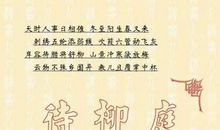 天时人事日相催 冬至阳生春又来
刺绣五纹添弱线 吹葭六管动飞灰
岸容待腊将舒柳 山意冲寒欲放梅
云物不殊乡国异 教儿且覆掌中杯
待柳庭